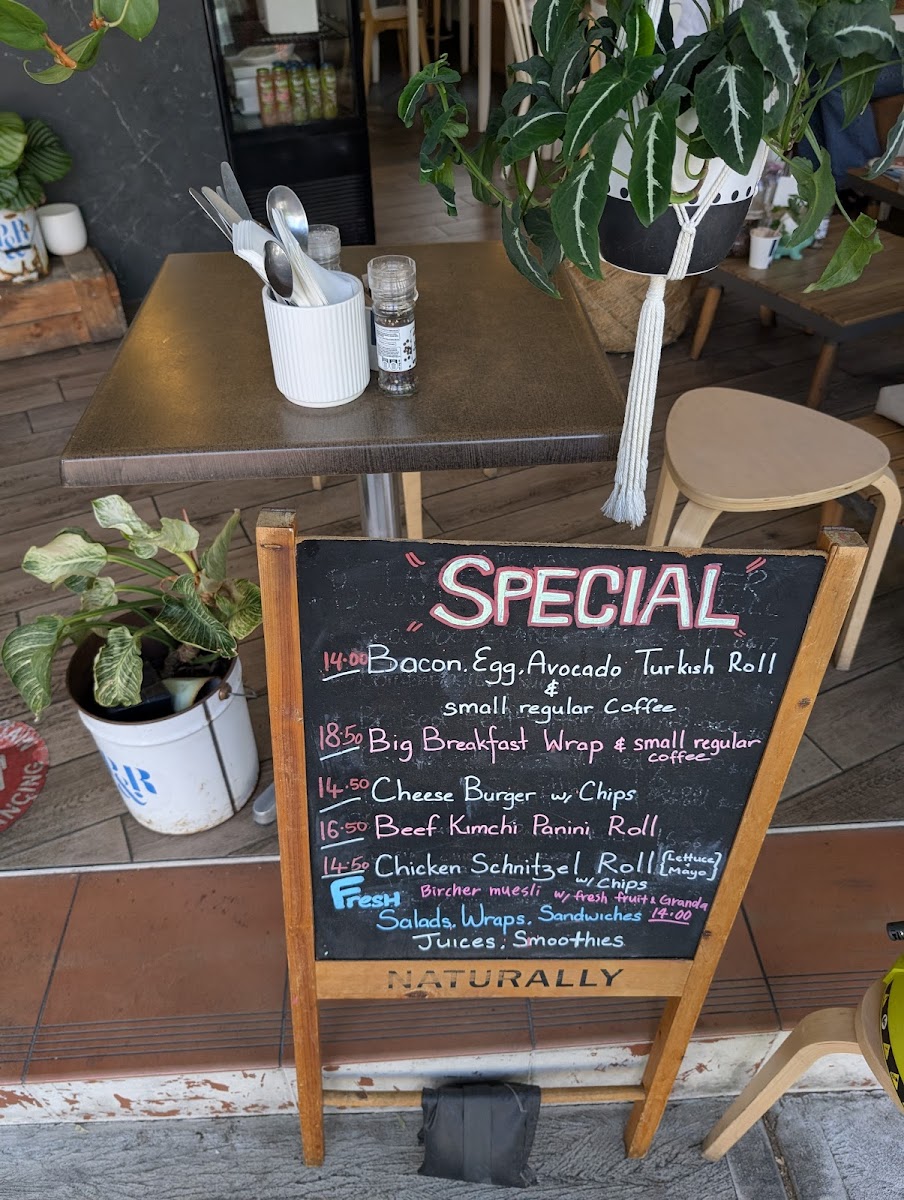 "SPECIAL"
14.00 Bacon. Egg. Avocado Turkish Roll
&
small regular Coffee
18.50 Big Breakfast Wrap & small regular
coffee
14.50 Cheese Burger w/ Chips
16.50 Beef Kimchi Panini Roll
14.50 Chicken Schnitzel Roll {Lettuce & Mayo}
w/ Chips
Fresh Bircher muesli w/ fresh fruit & Granola
Salads. Wraps. Sandwiches 14.00
Juices. Smoothies
NATURALLY